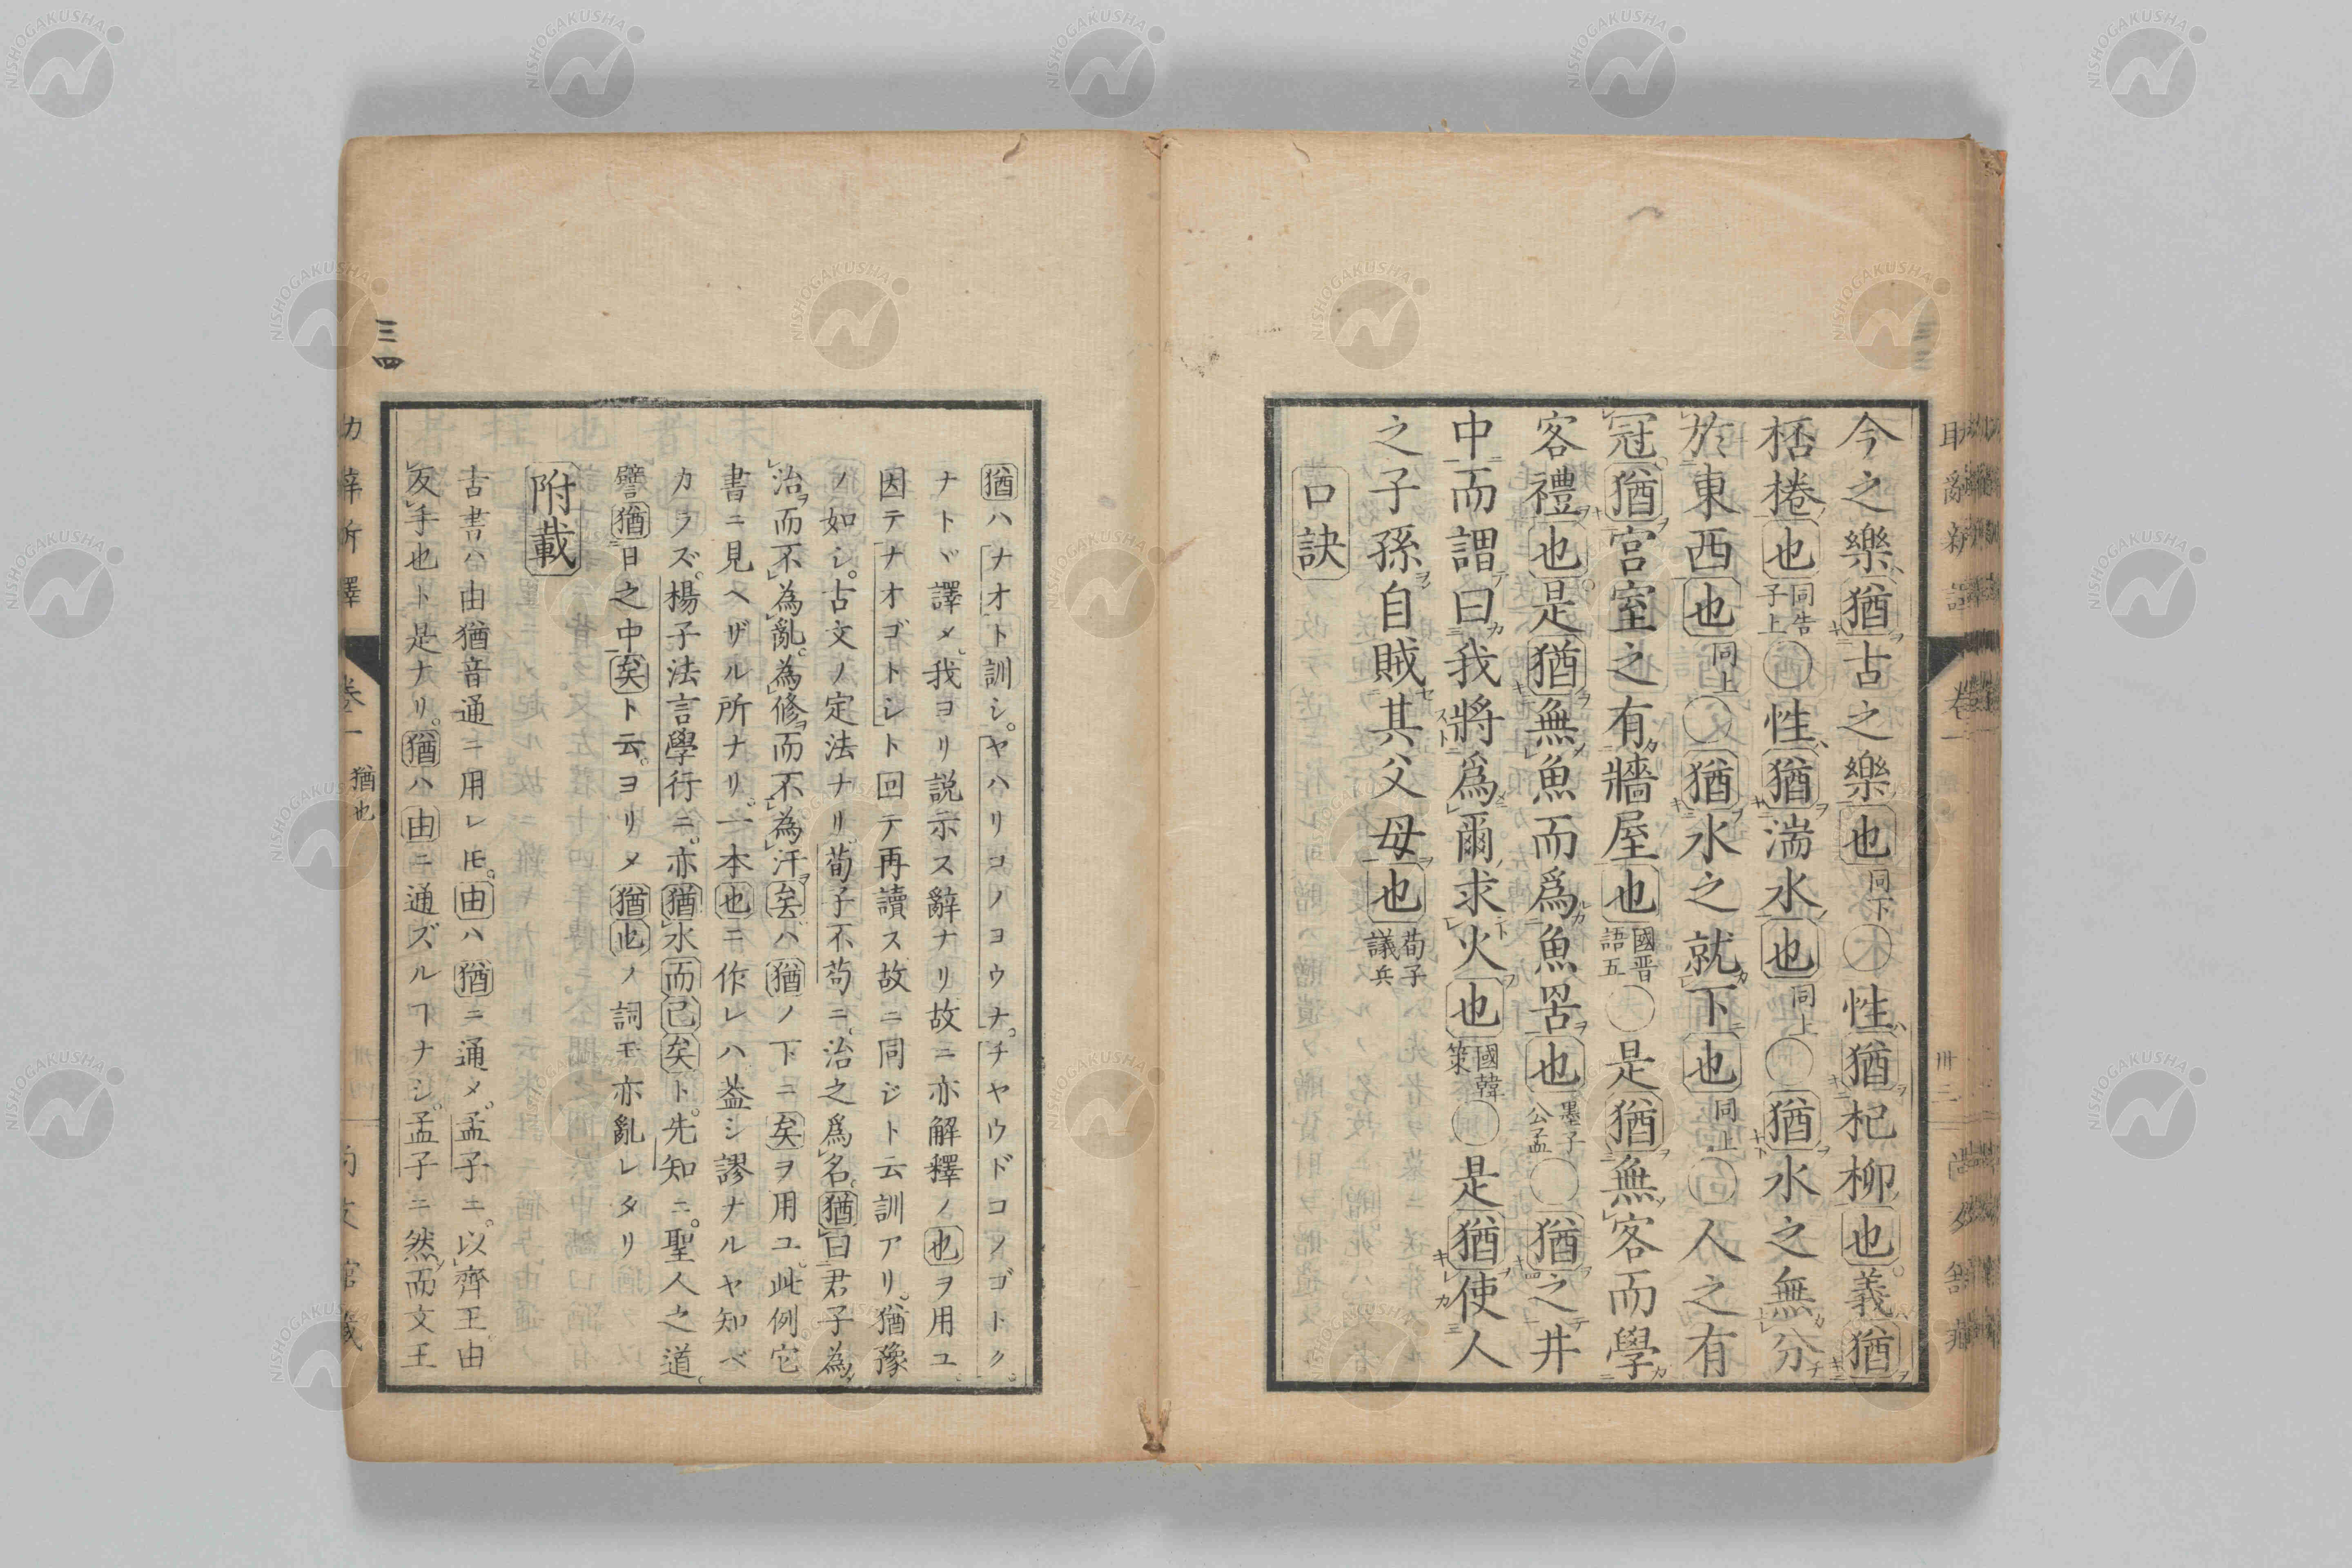 今之樂猶古之樂也同下○性猶杞柳也義猶
桮棬也同告子上○性猶湍水也同上○猶水之無分
於東西也同上○猶水之就下也同上○人之有
冠猶宮室之有牆屋也國晋語五○是猶無客而學
客禮也是猶無魚而爲魚罟也墨子公孟○猶之井
中而謂曰我將爲爾求火也國韓策○是猶使人
之子孫自賊其父母也荀子議兵
口訣
猶ハナオト訓シ。ヤハリコノヨウナ。チヤウドコノゴトク。
ナトヾ譯メ。我ヨリ説示ス辭ナリ故ニ亦解釋ノ也ヲ用ユ。
因テナオゴトシト回テ再讀ス故ニ同ジト云訓アリ。猶豫
ノ如シ。古文ノ定法ナリ。荀子不苟ニ。治之爲名。猶曰君子為
治ヲ而不為亂。為修ヲ而不為汙ヲ矣バ猶ノ下ニ矣ヲ用ユ。此例它
書ニ見ヘザル所ナリ。一本也ニ作レハ蓋シ謬ナルヤ知ベ
カラズ。楊子法言學行ニ。亦猶水而已矣ト。先知ニ。聖人之道。
譬猶日之中矣ト云。ヨリメ猶也ノ詞モ亦亂レタリ
附載
古書ハ由猶音通ニ用レ𪜈。由ハ猶ニ通メ。孟子ニ。以齊王由
反手也ト是ナリ。猶ハ由ニ通ズルヿナシ。孟子ニ然而文王
助辭新譯 卷一 猶也
三四
卷一 卅二
NISHOGAKUSHA